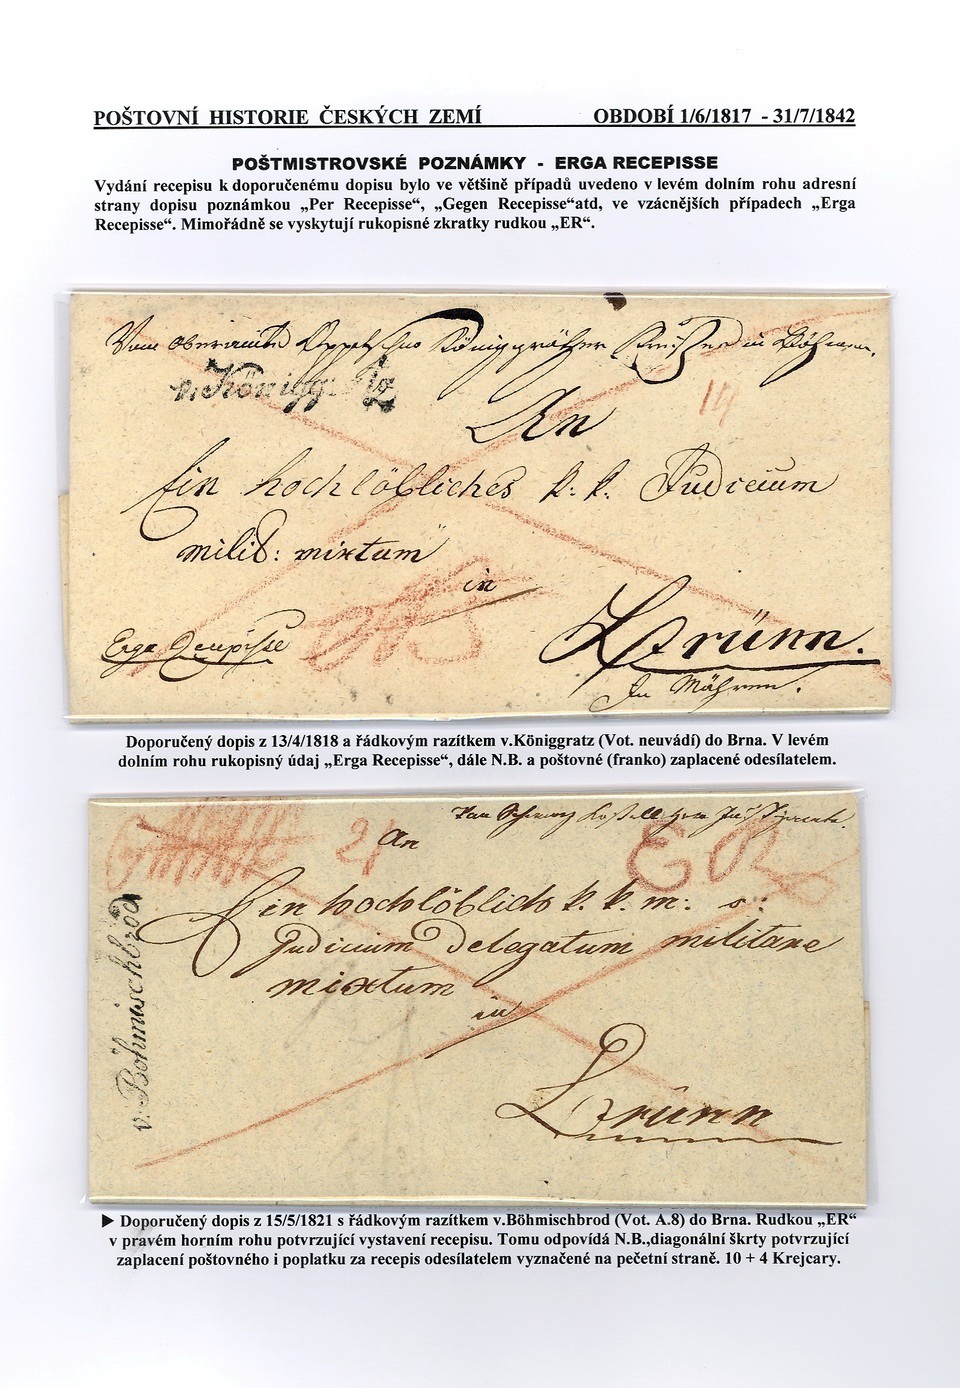 POŠTOVNÍ HISTORIE ČESKÝCH ZEMÍ OBDOBÍ 1/6/1817 - 31/7/1842
POŠTMISTROVSKÉ POZNÁMKY - ERGA RECEPISSE
Vydání recepisu k doporučenému dopisu bylo ve většině případů uvedeno v levém dolním rohu adresní
strany dopisu poznámkou „Per Recepisse“, „Gegen Recepisse“atd, ve vzácnějších případech „Erga
Recepisse“. Mimořádně se vyskytují rukopisné zkratky rudkou „ER“.
Vom Oberamte Königgrätzer in Böhmen.
v. Königg
14
An
Ein hochlöbliches k: k: Judicium
milit: mixtum
in
NB
Erga Recepisse
Brünn.
In Mähren.
Doporučený dopis z 13/4/1818 a řádkovým razítkem v.Königgratz (Vot. neuvádí) do Brna. V levém
dolním rohu rukopisný údaj „Erga Recepisse“, dále N.B. a poštovné (franko) zaplacené odesílatelem.
An
ER
v. Böhmischbrod
Ein hochlöblich k. k. m: s:
Judicium delegatum militare
mixtum
in
Brünn
► Doporučený dopis z 15/5/1821 s řádkovým razítkem v.Böhmischbrod (Vot. A.8) do Brna. Rudkou „ER“
v pravém horním rohu potvrzující vystavení recepisu. Tomu odpovídá N.B.,diagonální škrty potvrzující
zaplacení poštovného i poplatku za recepis odesílatelem vyznačené na pečetní straně. 10 + 4 Krejcary.